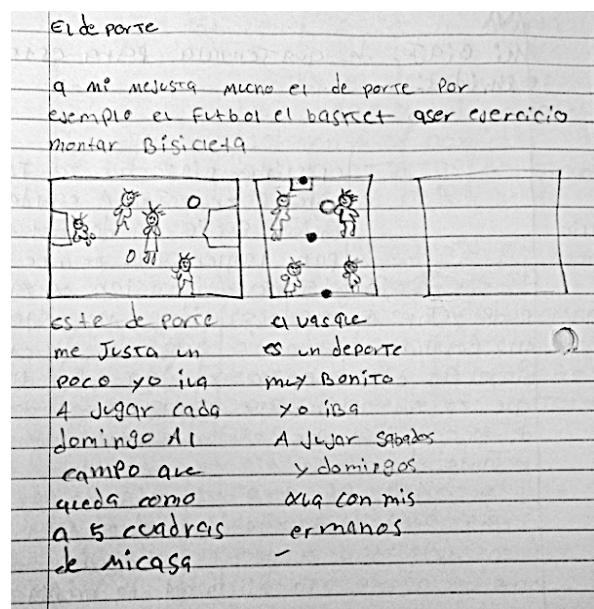 El de porte
a mi mejusta mucho el de porte Por
ejemplo el Futbol el bastket aser ejercicio
montar Bisicleta
Este de Porte
me Justa un
poco yo iva
A Jugar cada
domingo Al
campo que
queda como
a 5 cuadras
de micasa
el vasque
es un deporte
muy Bonito
yo iba
A Jujar Sabados
y domingos
con mis
ermanos